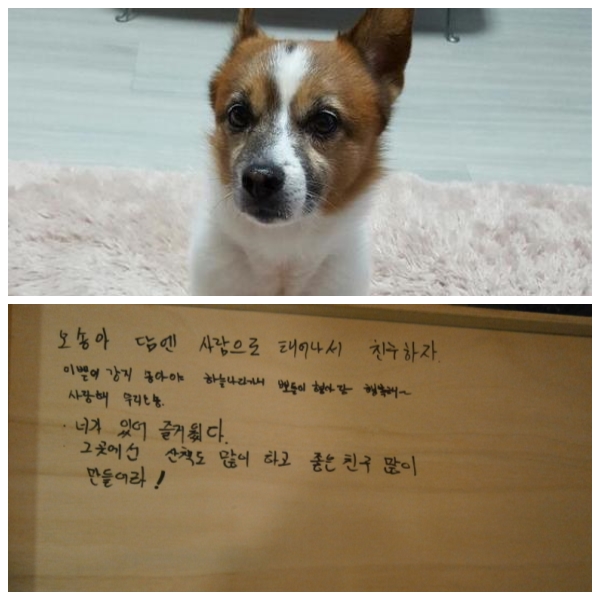 오송아 담엔 사람으로 태어나서 친구하자.
이쁜이 강지 송아야 하늘나라가서 뽀동이 형아랑 행복해~
사랑해
· 너가 있어 즐거웠다.
그곳에선 산책도 많이 하고 좋은 친구 많이
만들어라!